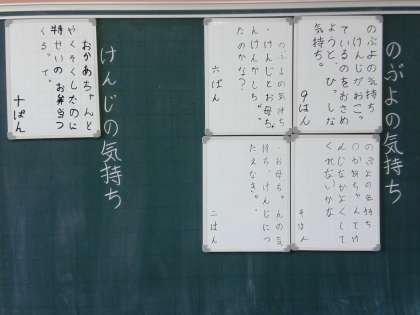 のぶよの気持ち
のぶよの気持ち
けんじがおこっ
ているのをおさめ
ようと、ひっしな
気持ち。
9ぱん
のぶよの気持ち
くれないかな
・のぶよの気持ち
・けんじとお母ち
たのかな?
六ぱん
・お母ちゃんの気
持ち、けんじにつ
たえなきゃ。
二はん
けんじの気持ち
おかあちゃんと
やくそくしたのに
特せいのお弁当つ
くるって。
十ぱん